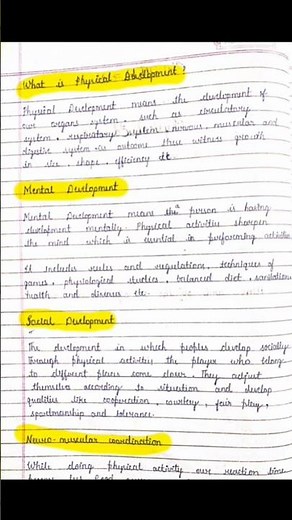 What is Physical Development?
Physical Development means the development of
our organs system, such as circulatory
system, respiratory system, nervous, muscular and
digestive system as outcome there witness growth
in size, shape, efficiency etc
Mental Development
Mental Development means the person is having
development mentally. Physical activities sharpen
the mind which is essential in performing activities
It includes rules and regulations, techniques of
games, physiological studies, balanced diet, sanitation
health and disease etc.
Social Development
The development in which peoples develop socially
Through physical activity the player who belong
to different places come closer. They adjust
themselves according to situation and develop
qualities like cooperation, courtesy, fair play,
sportmanship and tolerance.
Neuro-muscular coordination
While doing physical activity our reaction time